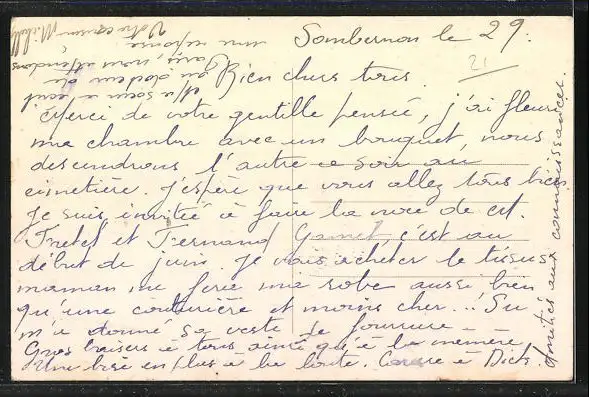 Sombernon le 29.
21
Bien chers tous.
Merci de votre gentille pensée, j'ai fleuri
ma chambre avec un bouquet, nous
descendrons l'autre ce soir au
cimetière. J'espère que vous allez tous bien
Je suis invitée à faire la noce de
et Fernand c'est au
début de juin. Je vais acheter le tissus
maman me fera ma robe aussi bien
qu'une couturière et moins cher...
m'a donné sa veste de fourrure -
Gros baisers à tous ainsi qu'à la mémère
Une bise en plus à la Caresse à Dick.
Amitiés aux connaissances.
Ma sœur a écrit
au docteur de
Paris, nous attendons
une réponse
Votre